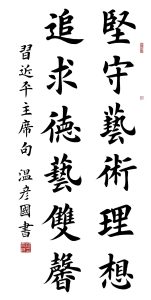 堅守藝術理想
追求德藝雙馨
習近平主席句 温彦國書